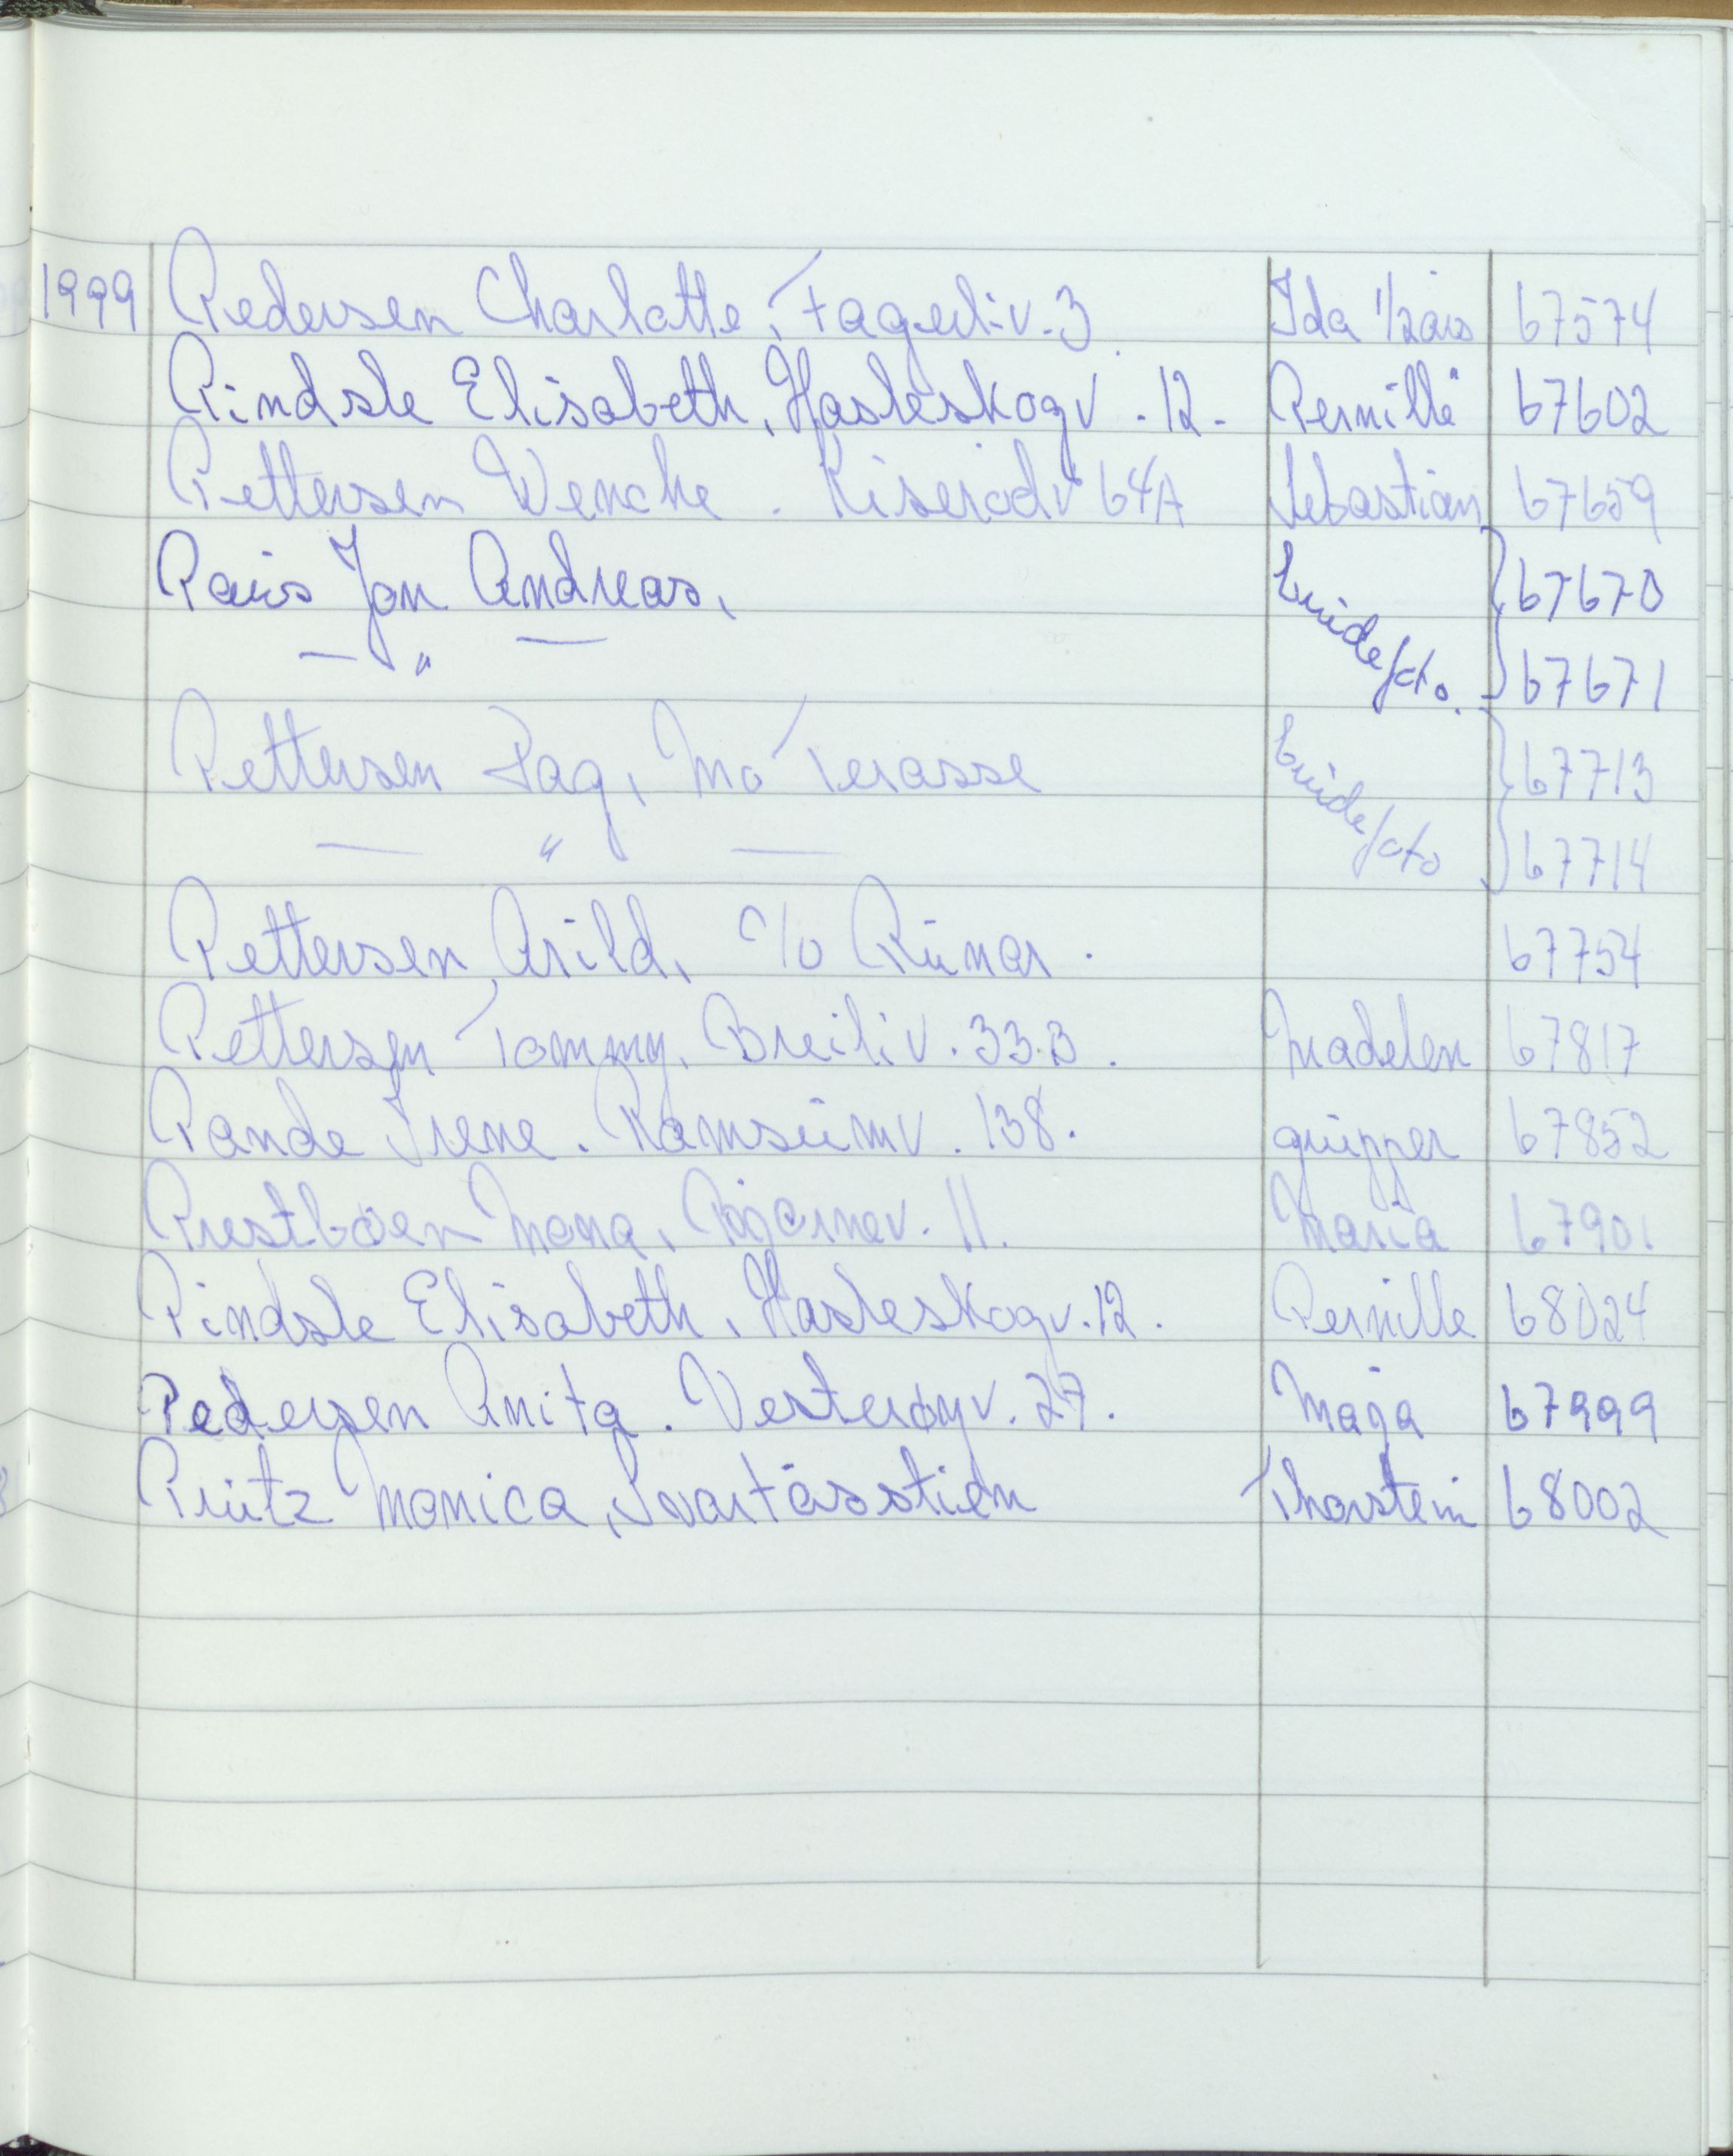 1999 Pedersen Charlotte, Fagerliv. 3 Ida 1/2 års 67574
Pindsle Elisabeth, Hasleskogv. 12. Pernille 67602
Pettersen Wenche. Kiserødv 64A Sebastian 67659
Paus Jan Andreas, brudefoto. 67670
— " — 67671
Pettersen Dag, Mo Terasse brudefoto 67713
— " — 67714
Pettersen Arild, c/o Runar. 67754
Pettersen Tommy. Breiliv. 33.B. Madelen 67817
Pande Irene. Ramsumv. 138. grupper 67852
Prestbøen Mona, Bjørnev. 11. Maria 67901
Pindsle Elisabeth, Hasleskogv. 12. Pernille 68024
Pedersen Anita. Vesterøyv. 27. Maja 67999
Prütz Monica, Svartåsstien Thorstein 68002